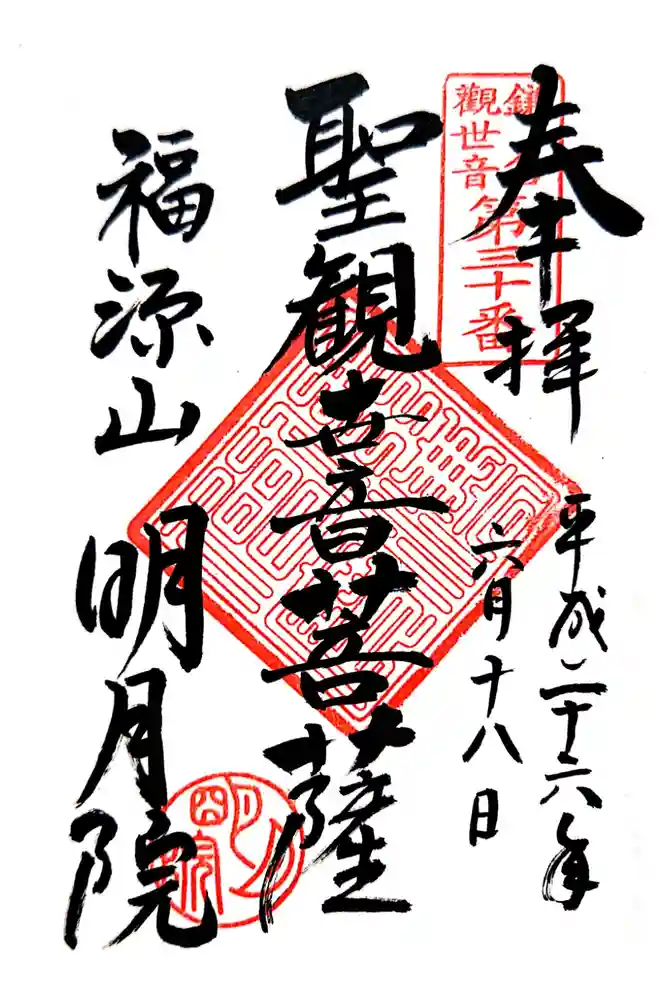 奉拝
平成二十六年
六月十八日
第三十番
觀世音
聖観世音菩薩
福源山
明月院